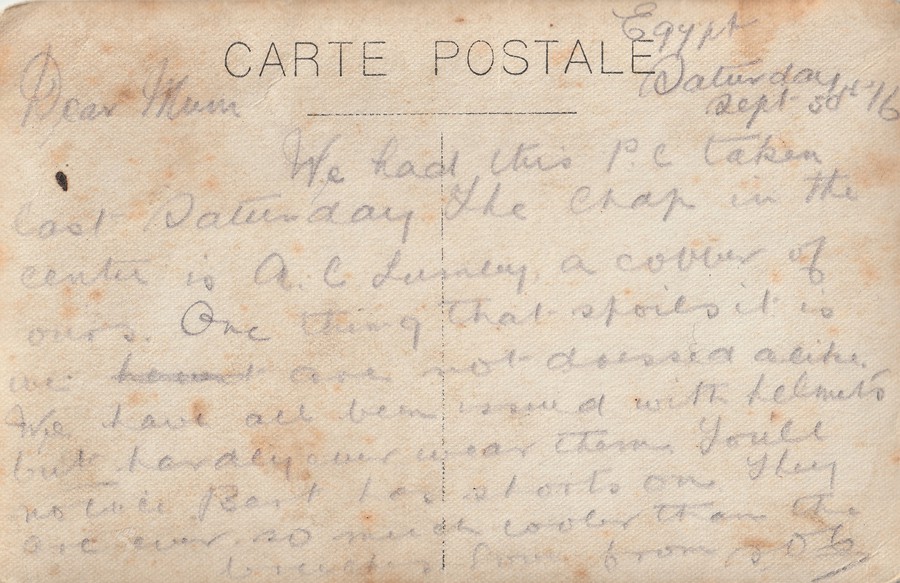 CARTE POSTALE
Egypt
Saturday
Sept 16
Dear Mum
We had this P.C taken
last Saturday The Chap in the
center is A. C Lumley, a cobber of
ours. One thing that spoils it is
we are not dressed alike.
We have all been issued with helmets
but hardly ever wear them You'll
notice Bert has shorts on They
are ever so much cooler than the
breeches Love from